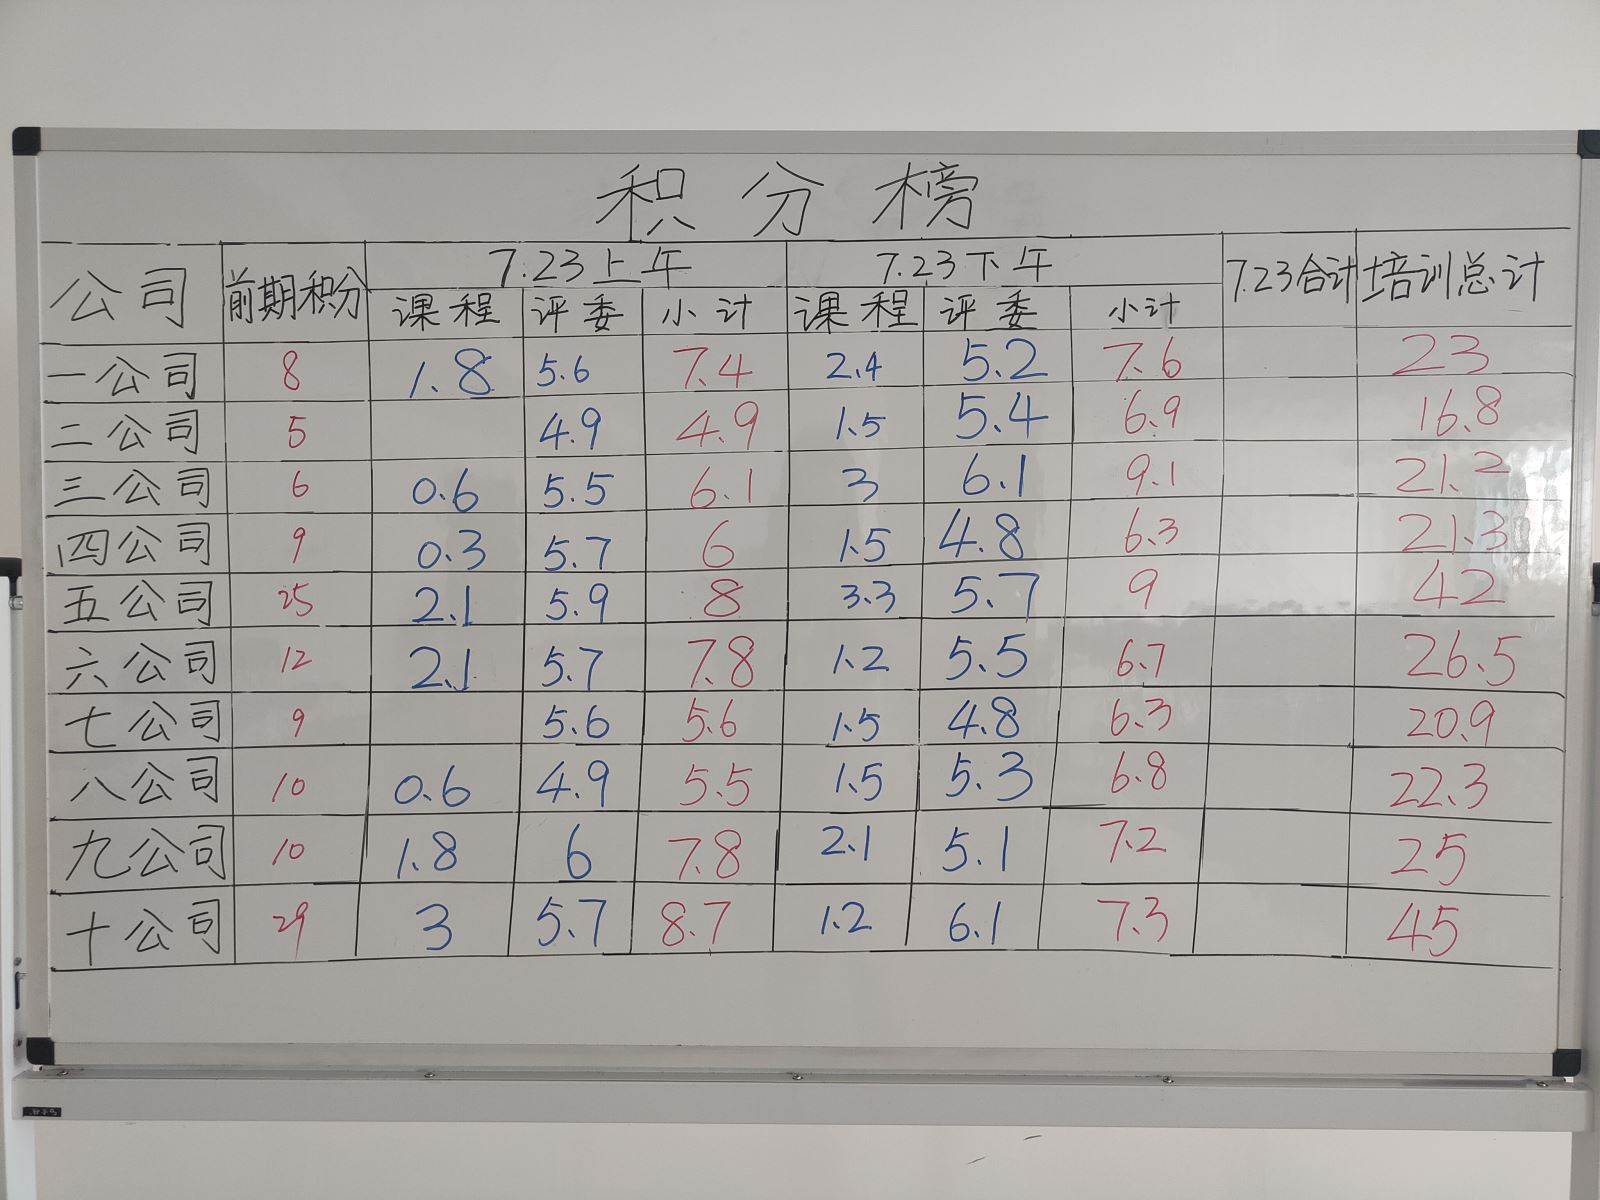 积分榜
公司 前期积分 7.23上午 7.23下午 7.23合计 培训总计
课程 评委 小计 课程 评委 小计
一公司 8 1.8 5.6 7.4 2.4 5.2 7.6 23
二公司 5 4.9 4.9 1.5 5.4 6.9 16.8
三公司 6 0.6 5.5 6.1 3 6.1 9.1 21.2
四公司 9 0.3 5.7 6 1.5 4.8 6.3 21.3
五公司 25 2.1 5.9 8 3.3 5.7 9 42
六公司 12 2.1 5.7 7.8 1.2 5.5 6.7 26.5
七公司 9 5.6 5.6 1.5 4.8 6.3 20.9
八公司 10 0.6 4.9 5.5 1.5 5.3 6.8 22.3
九公司 10 1.8 6 7.8 2.1 5.1 7.2 25
十公司 29 3 5.7 8.7 1.2 6.1 7.3 45